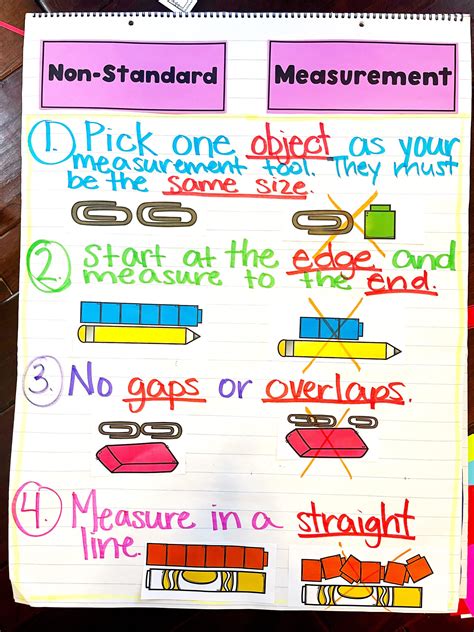 Non-Standard
Measurement
1. Pick one object as your
measurement tool. They must
be the same size.
2. Start at the edge and
measure to the end.
3. No gaps or overlaps.
4. Measure in a straight
line.